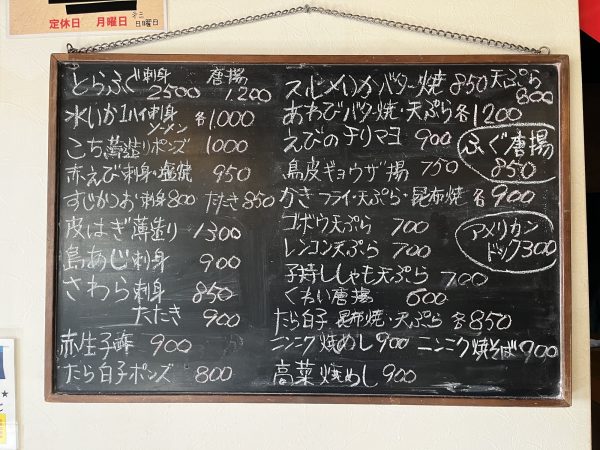 定休日 月曜日 第三日曜日
とらふぐ刺身 2500 唐揚 1200
水いか1ハイ刺身 ソーメン 各1,000
こち薄造りポンズ 1000
赤えび刺身・塩焼 950
すじがつお刺身800 たたき850
皮はぎ薄造り 1300
島あじ刺身 900
さわら刺身 850
たたき 900
赤生子酢 900
たら白子ポンズ 800
スルメいかバター焼850 天ぷら800
あわびバター焼・天ぷら各1200
えびのチリマヨ 900
鳥皮ギョウザ揚 750
かきフライ・天ぷら・昆布焼 各900
ゴボウ天ぷら 700
レンコン天ぷら 700
子持ししゃも天ぷら 700
くもい唐揚 600
たら白子 昆布焼・天ぷら 各850
ニンニク焼めし900 ニンニク焼そば700
高菜焼めし900
ふぐ唐揚
850
アメリカン
ドック300